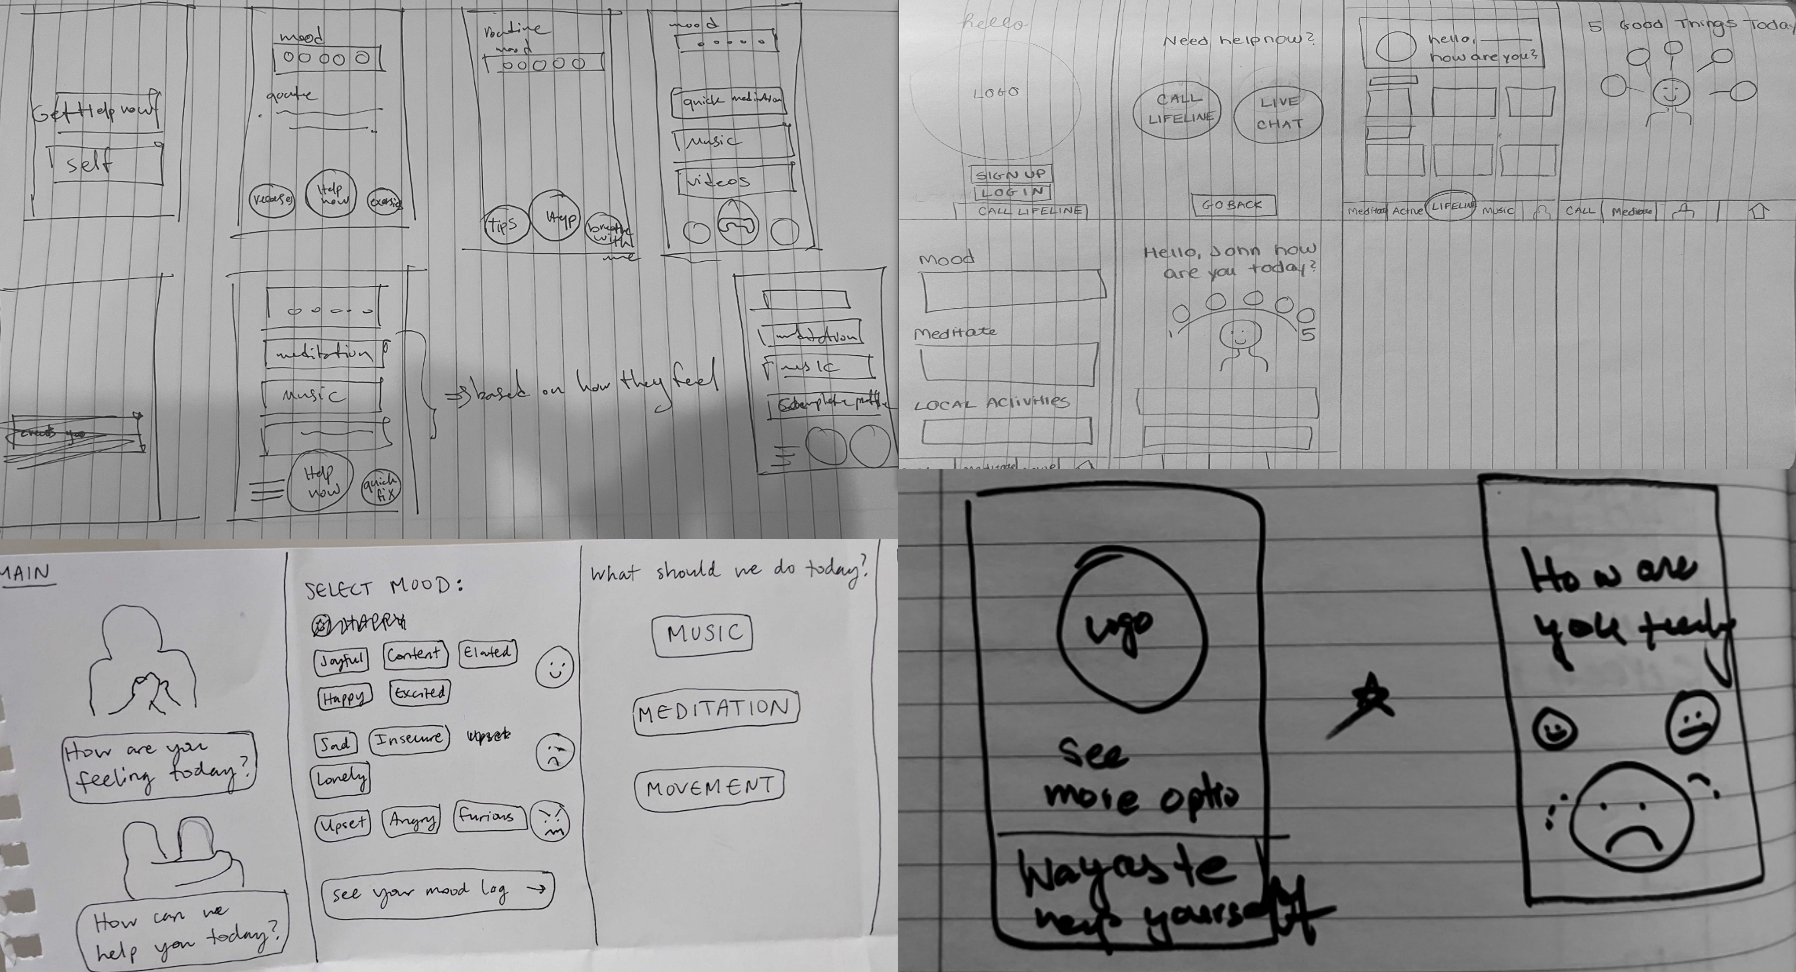 Get Help now
self
mood
quote
Help
now
routine
mood
Tips
breathe
with
me
mood
quick meditation
music
videos
meditation
music
Help
now
quick
fix
=> based on how they feel
meditation
music
hello
LOGO
SIGN UP
LOG IN
CALL LIFELINE
Need help now?
CALL
LIFELINE
LIVE
CHAT
GO BACK
hello,
how are you?
Active
LIFELINE
MUSIC
5 Good Things Today
CALL
Mood
Meditate
LOCAL ACTIVITIES
Hello, John how
are you today?
1
5
MAIN
How are you
feeling today?
How can we
help you today?
SELECT MOOD:
HAPPY
Joyful
Content
Elated
Happy
Excited
Sad
Insecure
upset
Lonely
Upset
Angry
Furious
see your mood log →
What should we do today?
MUSIC
MEDITATION
MOVEMENT
Logo
see
more optio
help yourself
How are
you